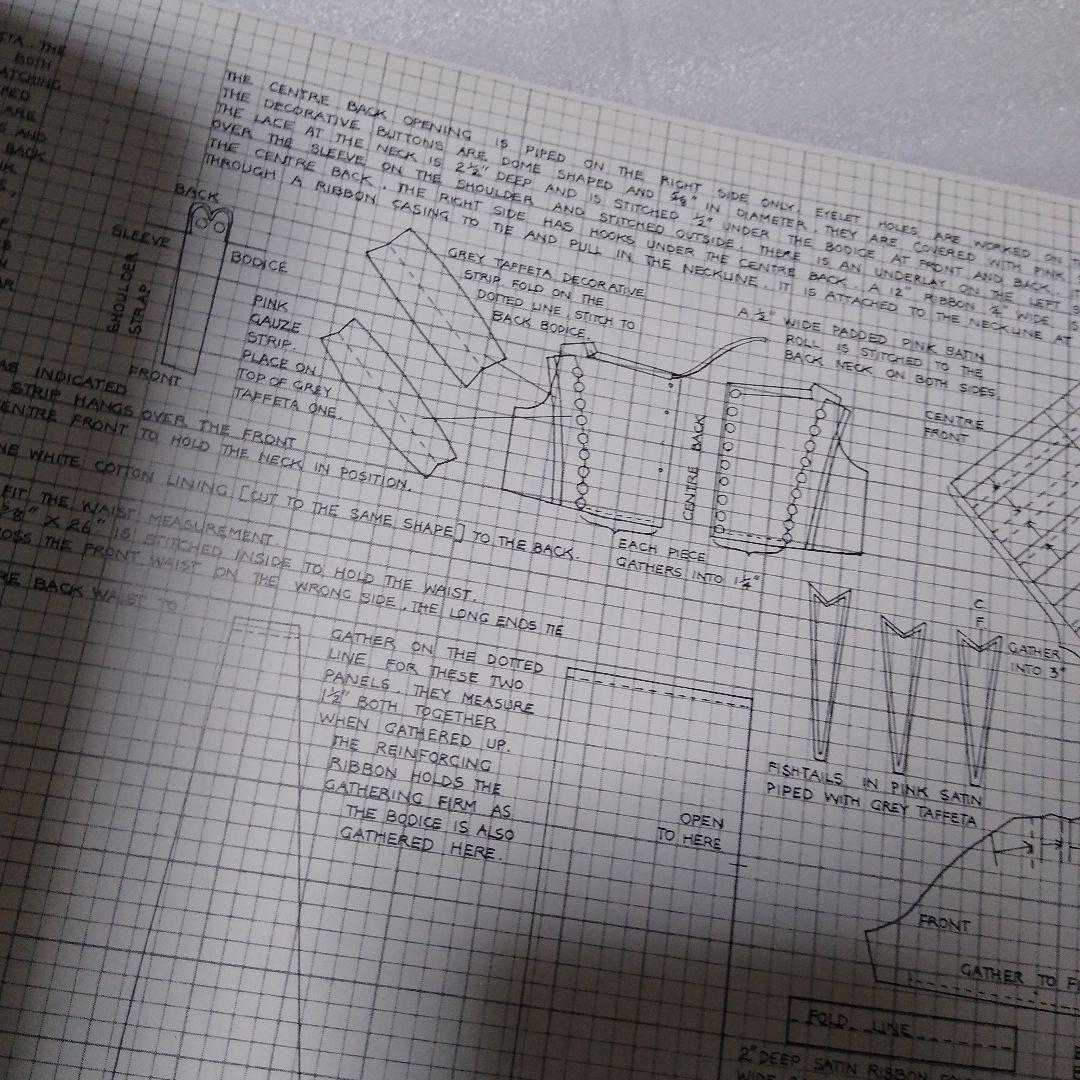 TA. THE
BOTH
ATCHING
PED
ARE
S AND
BACK
THE CENTRE BACK OPENING IS PIPED ON THE RIGHT SIDE ONLY. EYELET HOLES ARE WORKED ON
THE DECORATIVE BUTTONS ARE DOME SHAPED AND 5/8" IN DIAMETER. THEY ARE COVERED WITH PINK
THE LACE AT THE NECK IS 2½" DEEP AND IS STITCHED ½" UNDER THE BODICE AT FRONT AND BACK. IT
OVER THE SLEEVE ON THE SHOULDER AND STITCHED OUTSIDE. THERE IS AN UNDERLAY ON THE LEFT
THE CENTRE BACK. THE RIGHT SIDE HAS HOOKS UNDER THE CENTRE BACK. A 12" RIBBON ¼" WIDE IS
THROUGH A RIBBON CASING TO TIE AND PULL IN THE NECKLINE. IT IS ATTACHED TO THE NECKLINE AT
BACK
SLEEVE
BODICE
SHOULDER
STRAP
FRONT
GREY TAFFETA DECORATIVE
STRIP. FOLD ON THE
DOTTED LINE STITCH TO
BACK BODICE.
PINK
GAUZE
STRIP.
PLACE ON
TOP OF GREY
TAFFETA ONE.
A ½" WIDE PADDED PINK SATIN
ROLL IS STITCHED TO THE
BACK NECK ON BOTH SIDES
CENTRE
FRONT
CENTRE BACK
AS INDICATED
STRIP HANGS OVER THE FRONT
ENTRE FRONT TO HOLD THE NECK IN POSITION.
NE WHITE COTTON LINING [CUT TO THE SAME SHAPE] TO THE BACK.
FIT THE WAIST MEASUREMENT.
5/8" X 26" IS STITCHED INSIDE TO HOLD THE WAIST.
ROSS THE FRONT WAIST ON THE WRONG SIDE. THE LONG ENDS TIE
RE BACK WAIST TO
EACH PIECE
GATHERS INTO 1¼"
GATHER ON THE DOTTED
LINE FOR THESE TWO
PANELS. THEY MEASURE
1½" BOTH TOGETHER
WHEN GATHERED UP.
THE REINFORCING
RIBBON HOLDS THE
GATHERING FIRM AS
THE BODICE IS ALSO
GATHERED HERE.
OPEN
TO HERE
C
F
GATHER
INTO 3"
FISHTAILS IN PINK SATIN
PIPED WITH GREY TAFFETA
FRONT
GATHER TO F
FOLD LINE
2" DEEP SATIN RIBBON